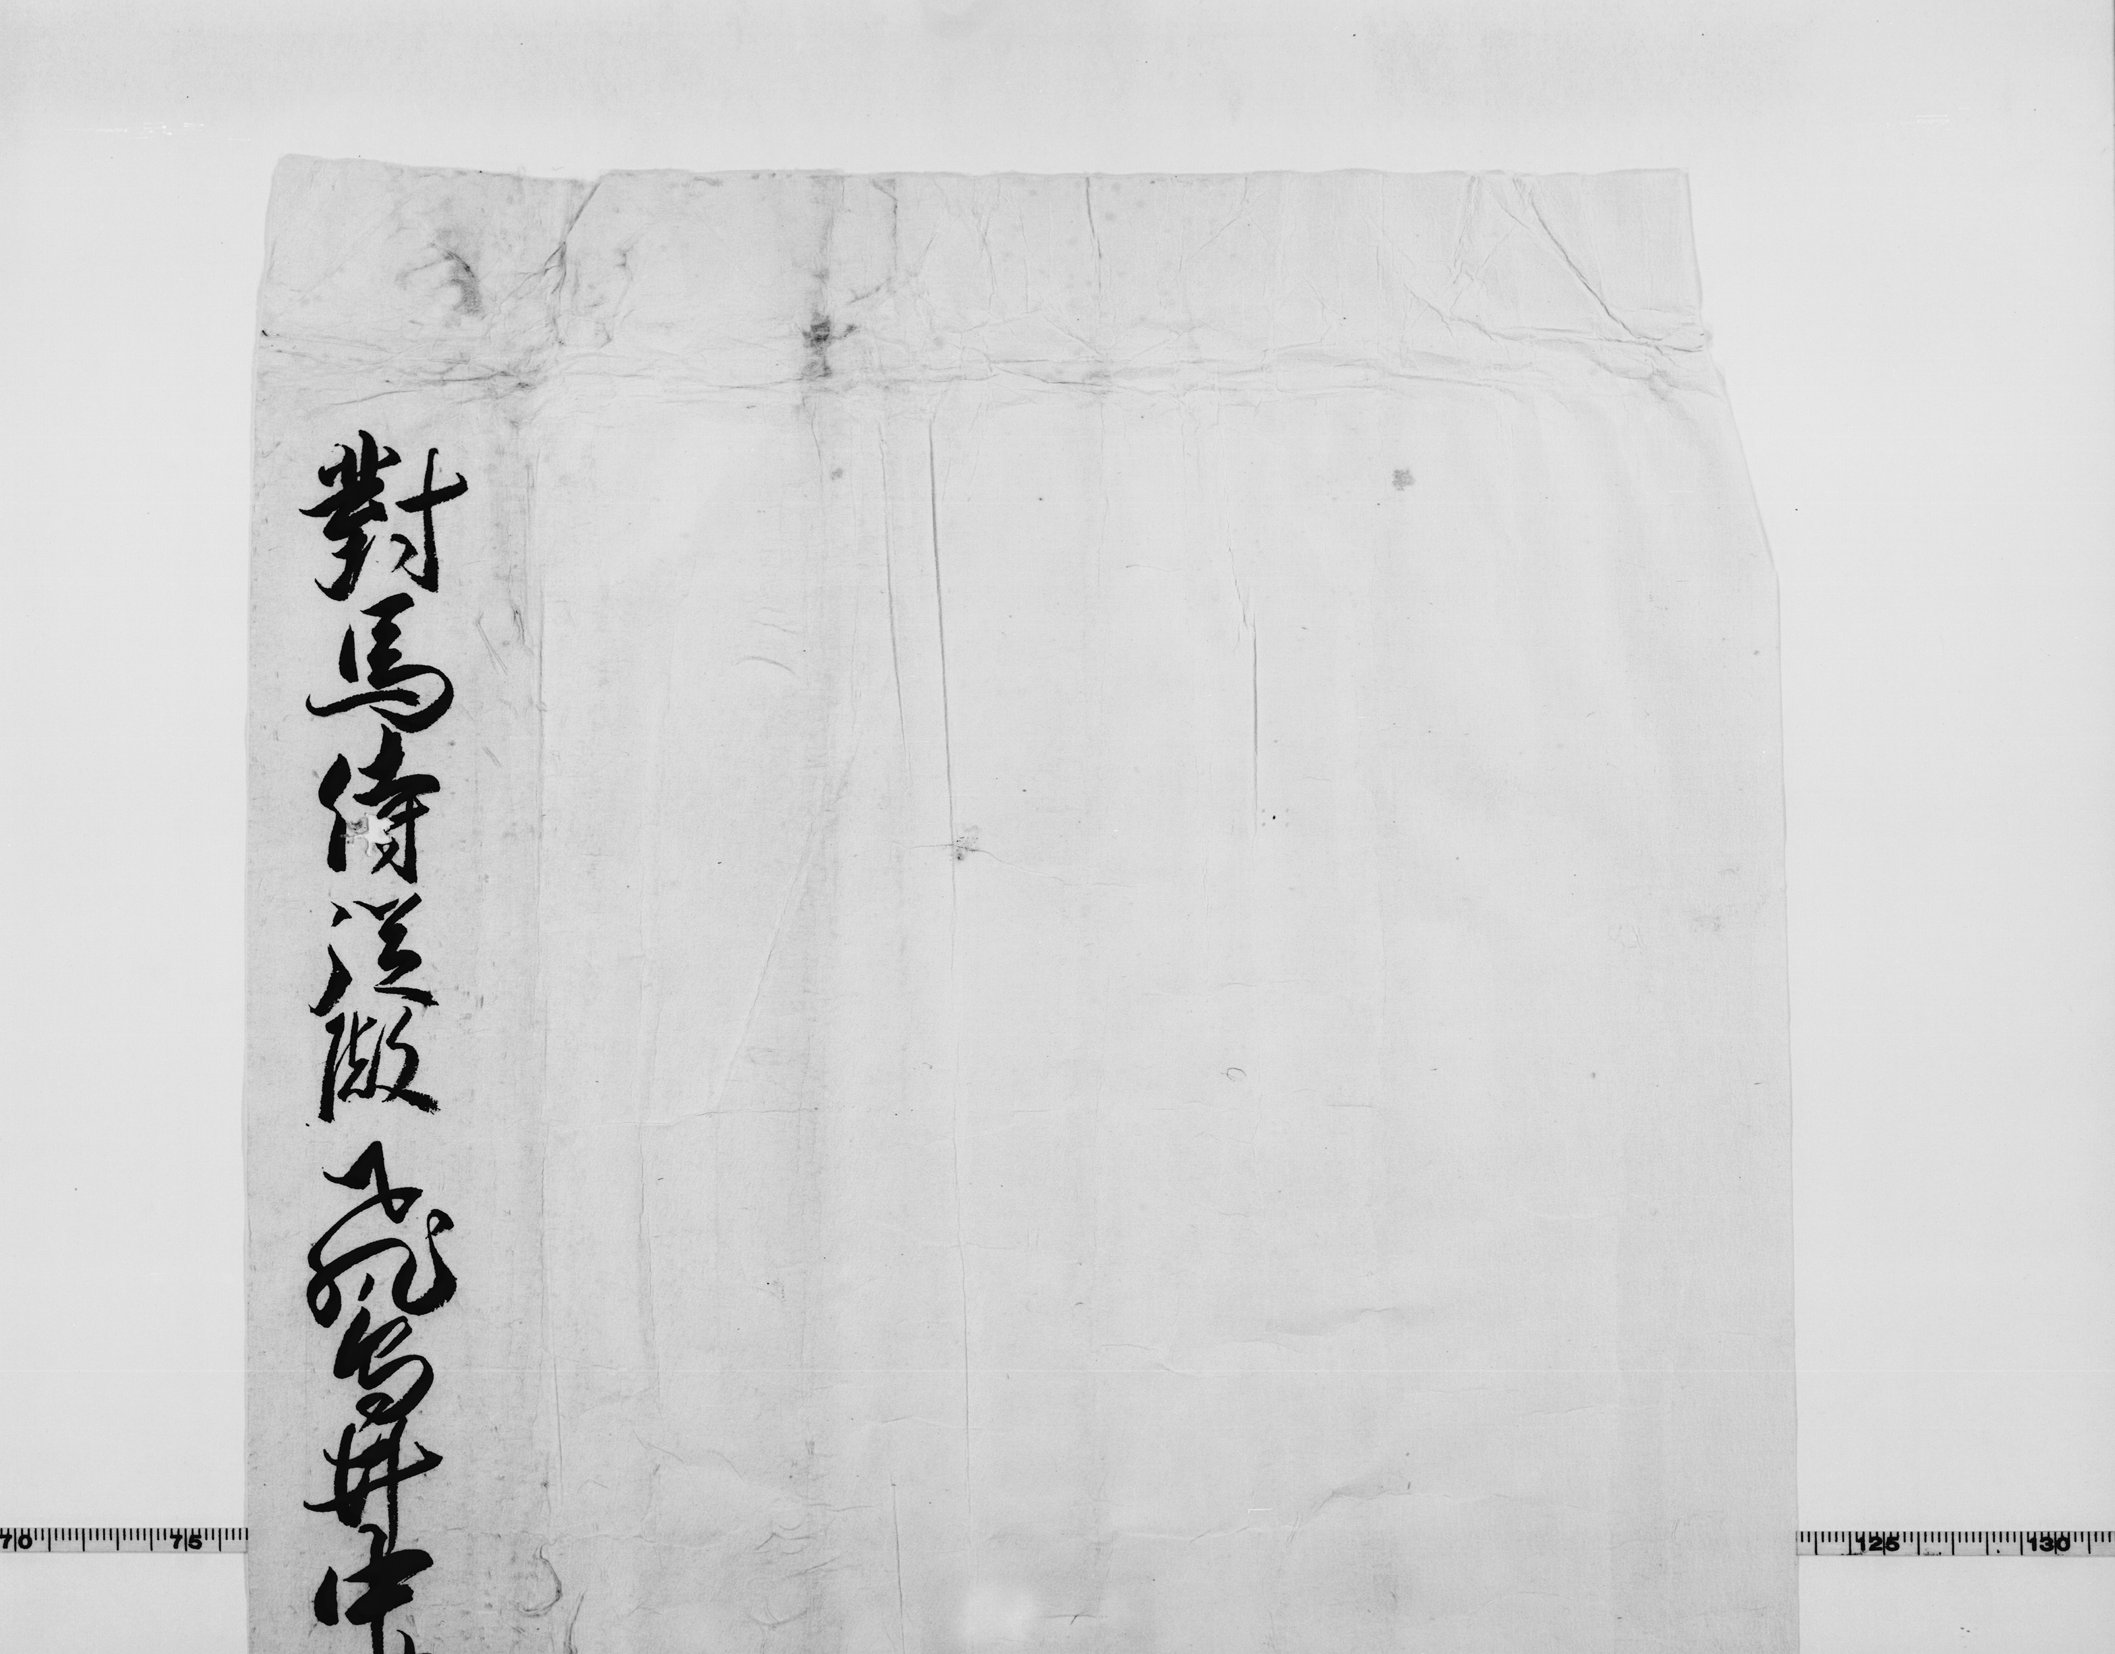 對馬侍従殿飛鳥井中
70 75 125 130